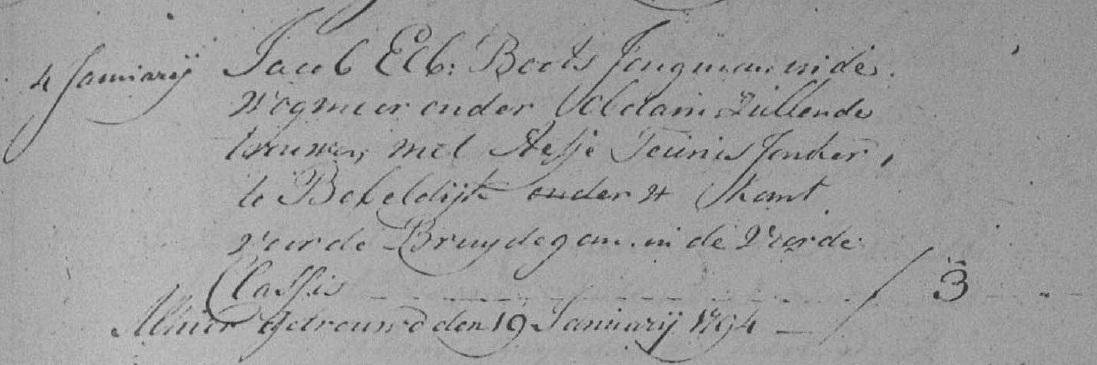 4 Januarij Jacob Elb: Boots Jongman in de
Wogmeer onder Obdam zullende
trouwen met Aefje Teunis Jonker,
te onder
voor de Bruydegom in de Vierde
Classis - - - - / 3 - -
Alhier getrouwd den 19 Januarij 1794 —